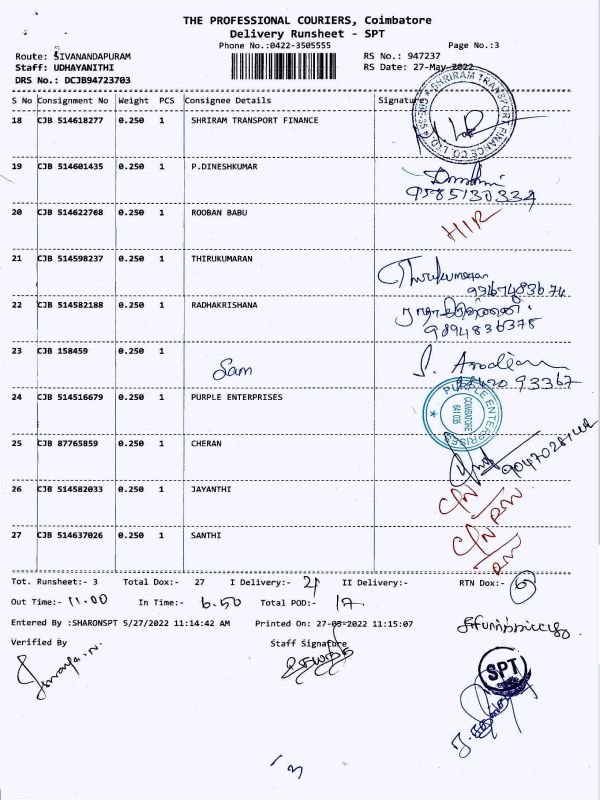 THE PROFESSIONAL COURIERS, Coimbatore
Delivery Runsheet - SPT
Phone No.:0422-3505555 Page No.:3
Route: SIVANANDAPURAM RS No.: 947237
Staff: UDHAYANITHI RS Date: 27-May-2022
DRS No.: DCJB94723703
S No Consignment No Weight PCS Consignee Details Signature
18 CJB 514618277 0.250 1 SHRIRAM TRANSPORT FINANCE
SHRIRAM TRANSPORT FINANCE CO. LTD.
19 CJB 514601435 0.250 1 P.DINESHKUMAR
9585130334
20 CJB 514622768 0.250 1 ROOBAN BABU
21 CJB 514598237 0.250 1 THIRUKUMARAN Thirukumaran
22 CJB 514582188 0.250 1 RADHAKRISHANA
9894836375
23 CJB 158459 0.250 1
Sam
24 CJB 514516679 0.250 1 PURPLE ENTERPRISES
PURPLE ENTERPRISES
COIMBATORE
25 CJB 87765859 0.250 1 CHERAN
26 CJB 514582033 0.250 1 JAYANTHI
27 CJB 514637026 0.250 1 SANTHI
Tot. Runsheet:- 3 Total Dox:- 27 I Delivery:- 21 II Delivery:- RTN Dox:- 6
Out Time:- 11.00 In Time:- 6.50 Total POD:- 17
Entered By :SHARONSPT 5/27/2022 11:14:42 AM Printed On: 27-05-2022 11:15:07
Verified By Staff Signature
SPT